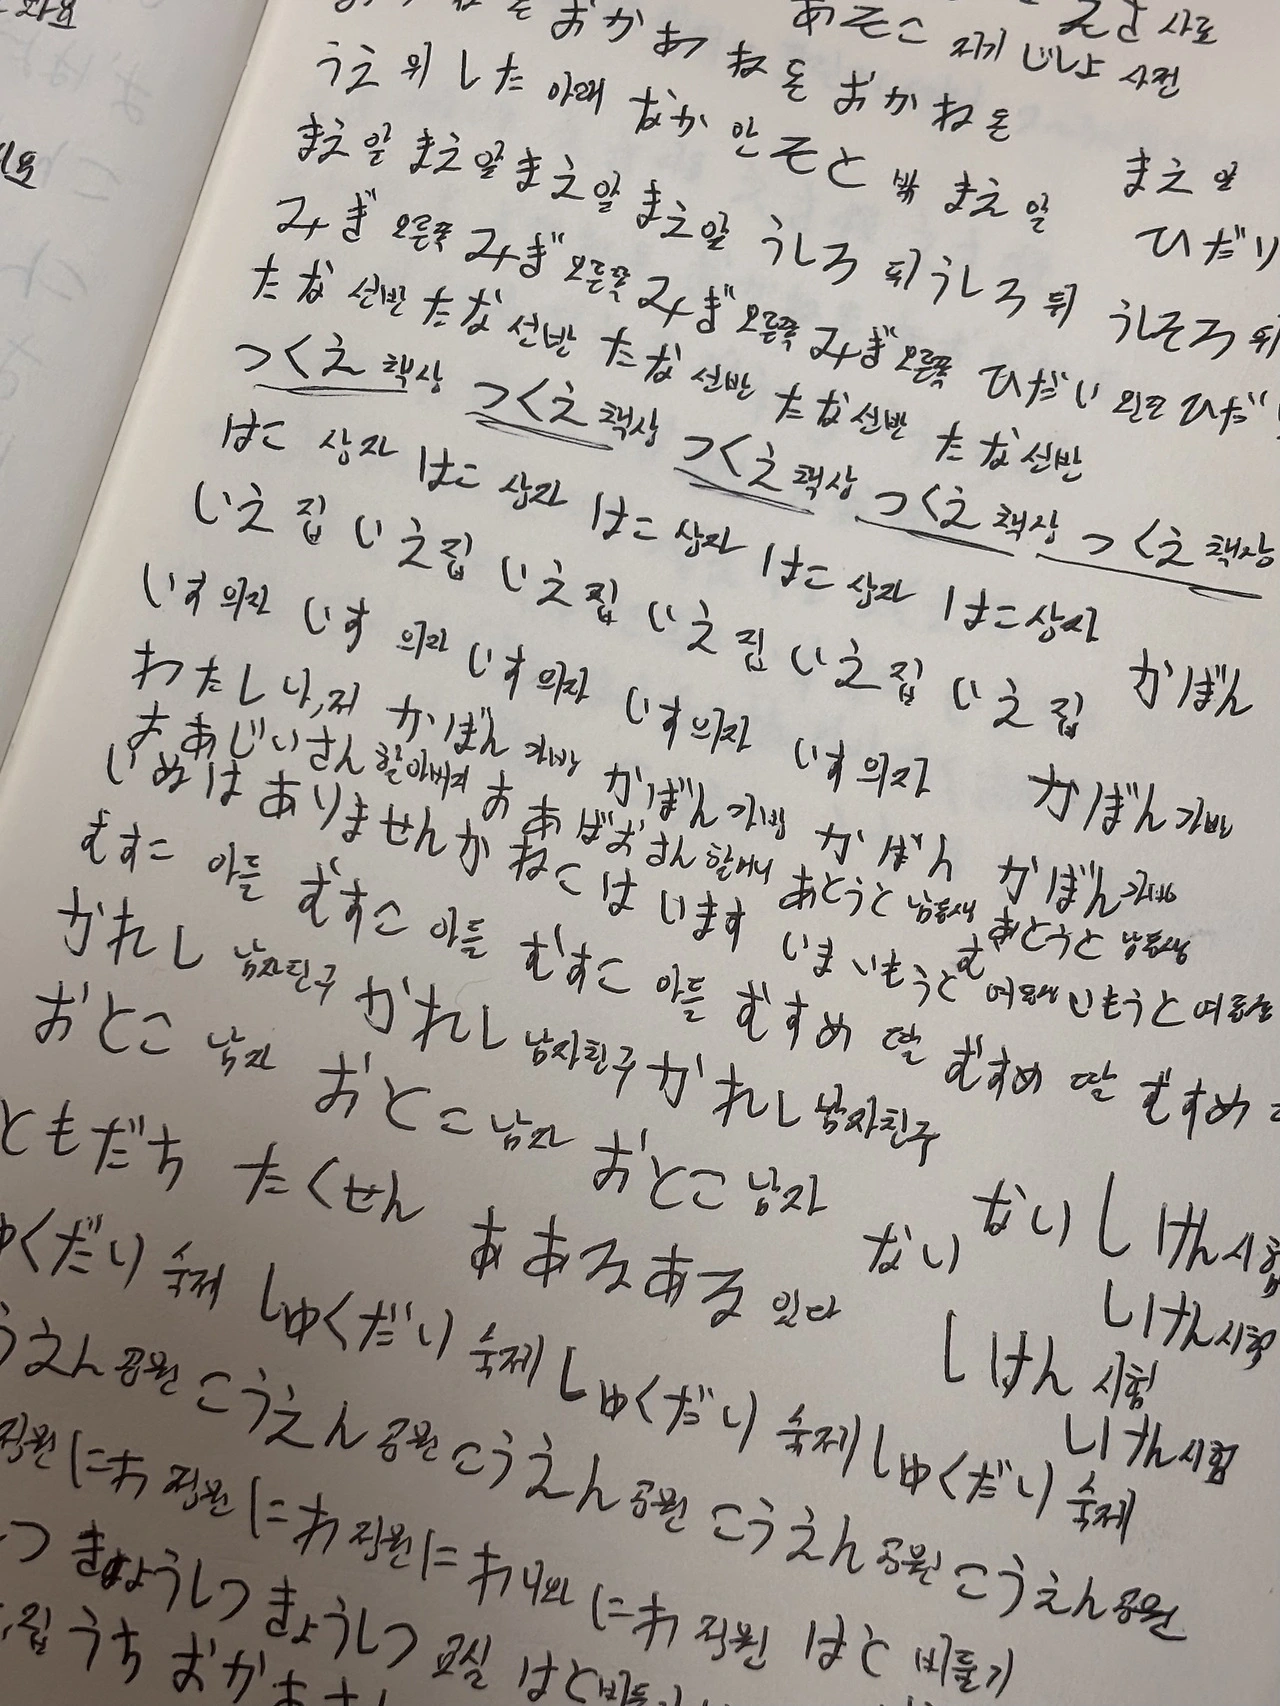 おかあ ねこ 돈 おかね 돈
あそこ 저기 じしょ 사전
うえ 위 した 아래 なか 안 そと 밖 まえ 앞 まえ 앞
まえ 앞 まえ 앞 まえ 앞 まえ 앞 うしろ 뒤 うしろ 뒤 うしろ 뒤
みぎ 오른쪽 みぎ 오른쪽 みぎ 오른쪽 みぎ 오른쪽 ひだい 왼쪽 ひだり
たな 선반 たな 선반 たな 선반 たな 선반 たな 선반
つくえ 책상 つくえ 책상 つくえ 책상 つくえ 책상 つくえ 책상
はこ 상자 はこ 상자 はこ 상자 はこ 상자 はこ 상자
いえ 집 いえ 집 いえ 집 いえ 집 いえ 집 いえ 집 かばん
いす 의자 いす 의자 いす 의자 いす 의자 いす 의자 かばん 가방
わたし 나,저 かばん 가방 かばん 가방 かばん かばん 가방
おあじいさん 할아버지 おあばあさん 할머니 あとうと 남동생 あとうと 남동생
いぬは ありませんか ねこは います いま いもうと 여동생 いもうと 여동생
むすこ 아들 むすこ 아들 むすこ 아들 むすめ 딸 むすめ 딸 むすめ
かれし 남자친구 かれし 남자친구 かれし 남자친구
おとこ 남자 おとこ 남자 おとこ 남자 ない しけん 시험
ともだち たくせん ああるある 있다 ない しけん 시험
ゅくだい 숙제 しゅくだい 숙제 しゅくだい 숙제 しゅくだい 숙제
しけん 시험
しけん 시험
うえん 공원 こうえん 공원 こうえん 공원 こうえん 공원 こうえん 공원
직원 にわ 정원 にわ 정원 にわ にわ 정원 はと 비둘기
つ きょうしつ きょうしつ 교실 はと
집 うち おかあさん